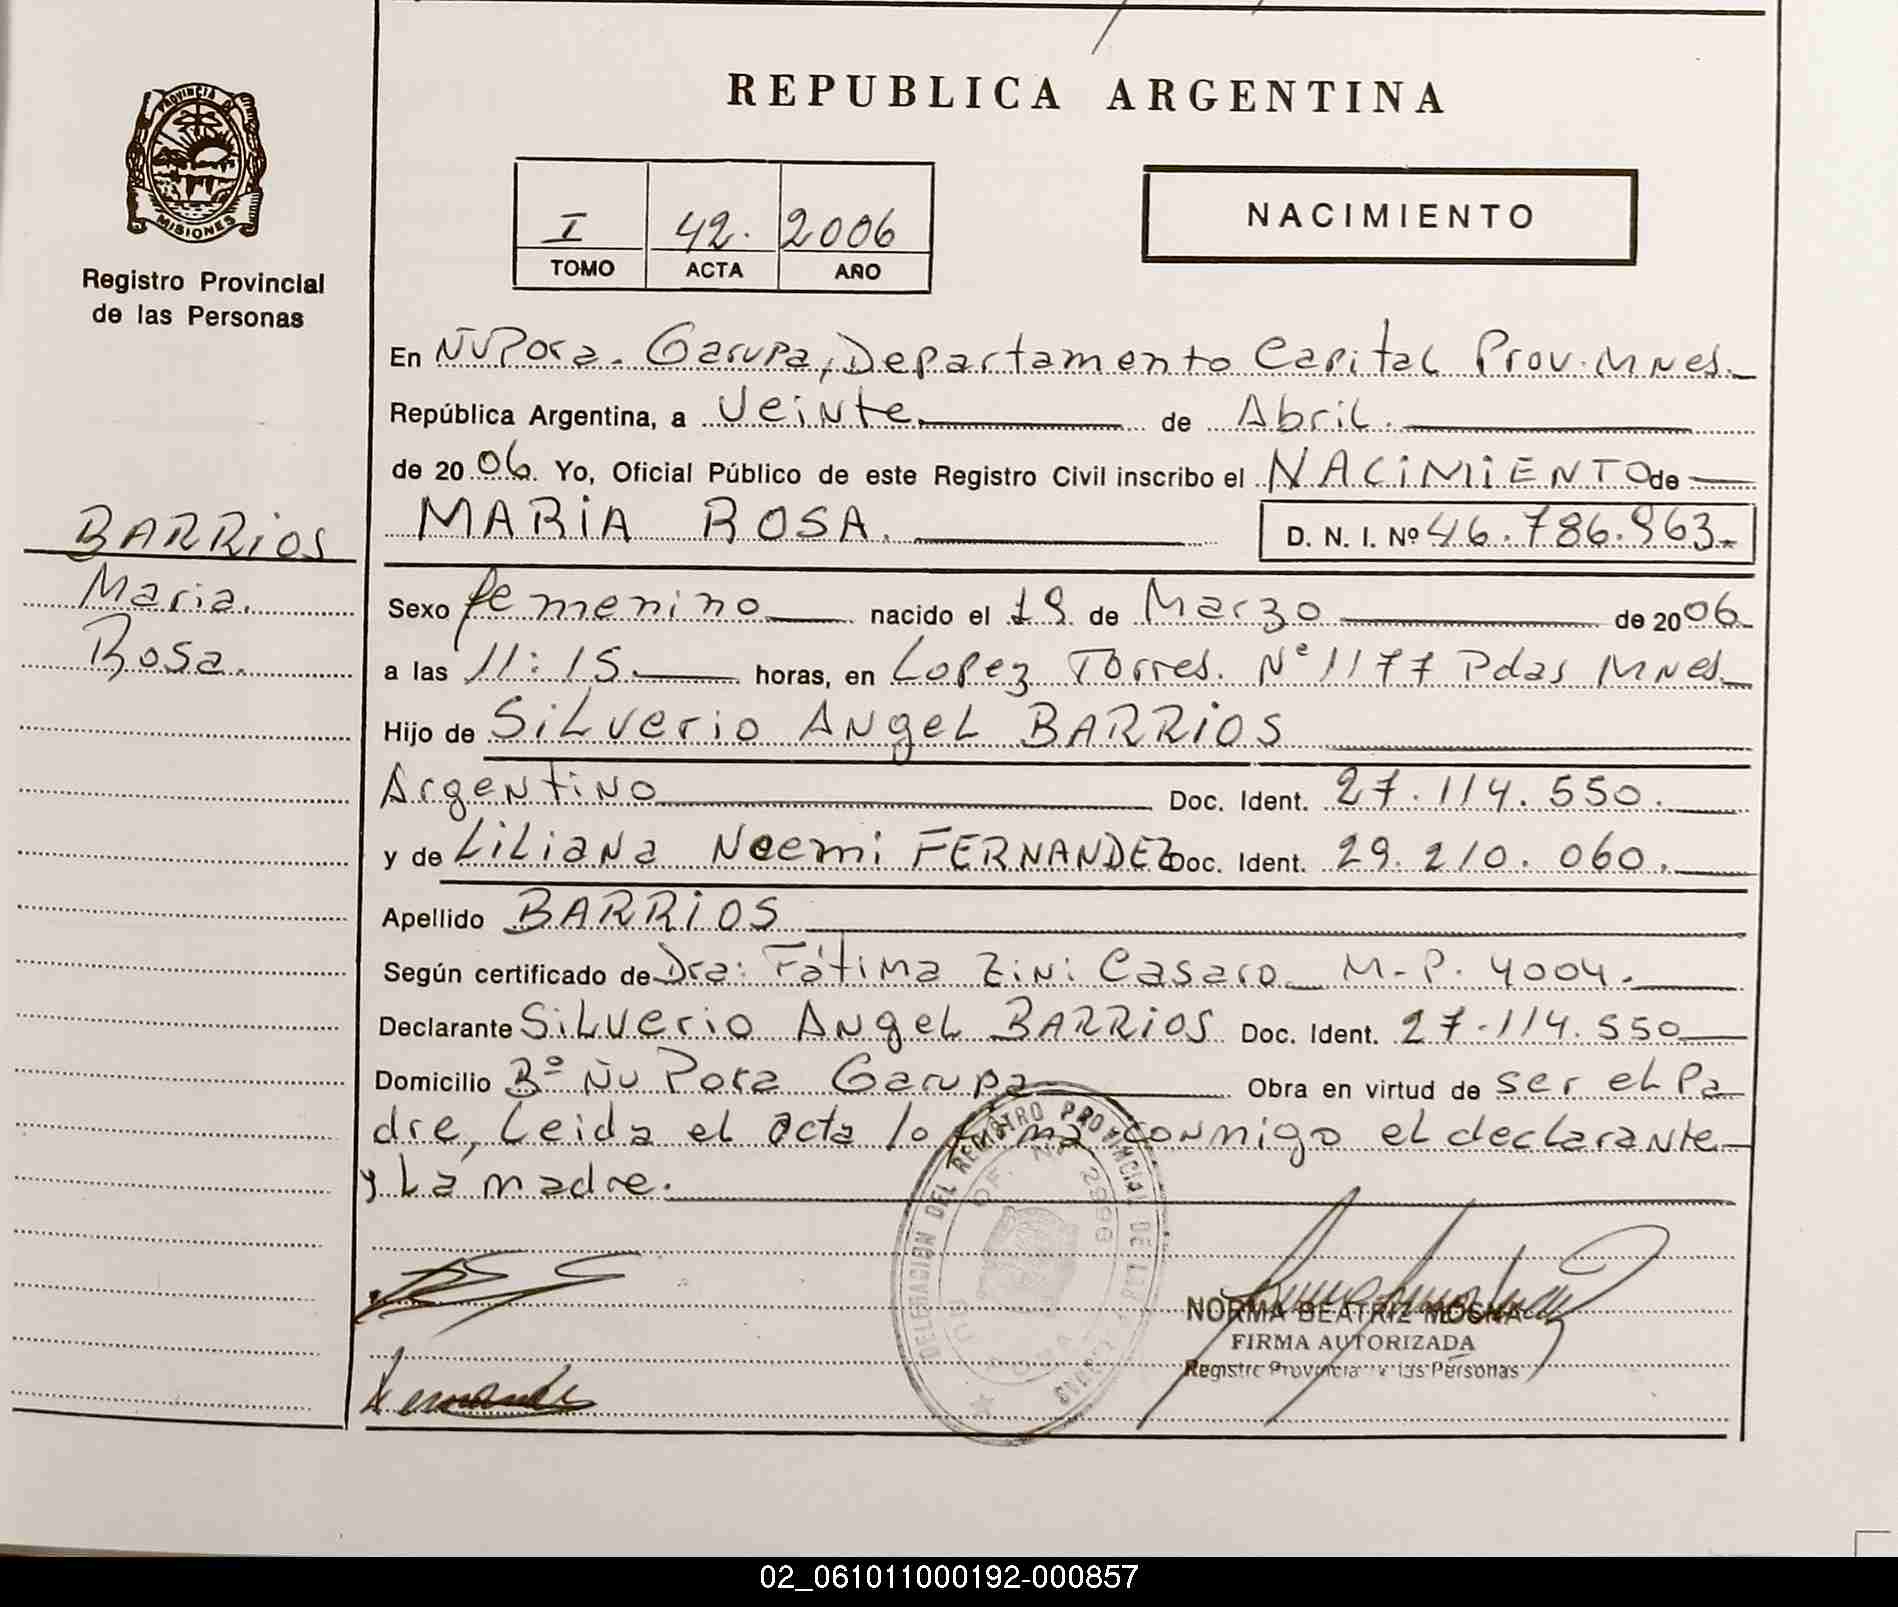 REPUBLICA ARGENTINA
PROVINCIA DE
MISIONES
Registro Provincial
de las Personas
I 42. 2006
TOMO ACTA AÑO
NACIMIENTO
En Ñu Pora. Garupa, Departamento Capital Prov. Mnes.
República Argentina, a Veinte de Abril.
de 2006. Yo, Oficial Público de este Registro Civil inscribo el NACIMIENTO de
MARIA ROSA. D. N. I. Nº 46.786.963.
BARRIOS
Maria.
Rosa.
Sexo femenino nacido el 19 de Marzo de 2006
a las 11:15 horas, en Lopez Torres. Nº 1177 Pdas Mnes.
Hijo de Silverio Angel BARRIOS
Argentino Doc. Ident. 27.114.550.
y de Liliana Noemi FERNANDEZ Doc. Ident. 29.210.060.
Apellido BARRIOS
Según certificado de Dra: Fátima Zini Casaro M.P. 4004.
Declarante Silverio Angel BARRIOS Doc. Ident. 27.114.550
Domicilio Bº Ñu Pora Garupa Obra en virtud de ser el Pa
dre, Leida el acta lo firma conmigo el declarante
y La madre.
DELEGACION DEL REGISTRO PROVINCIAL DE LAS
OF. Nº 2998
NORMA BEATRIZ
FIRMA AUTORIZADA
Registro Provincial de las Personas
02_061011000192-000857